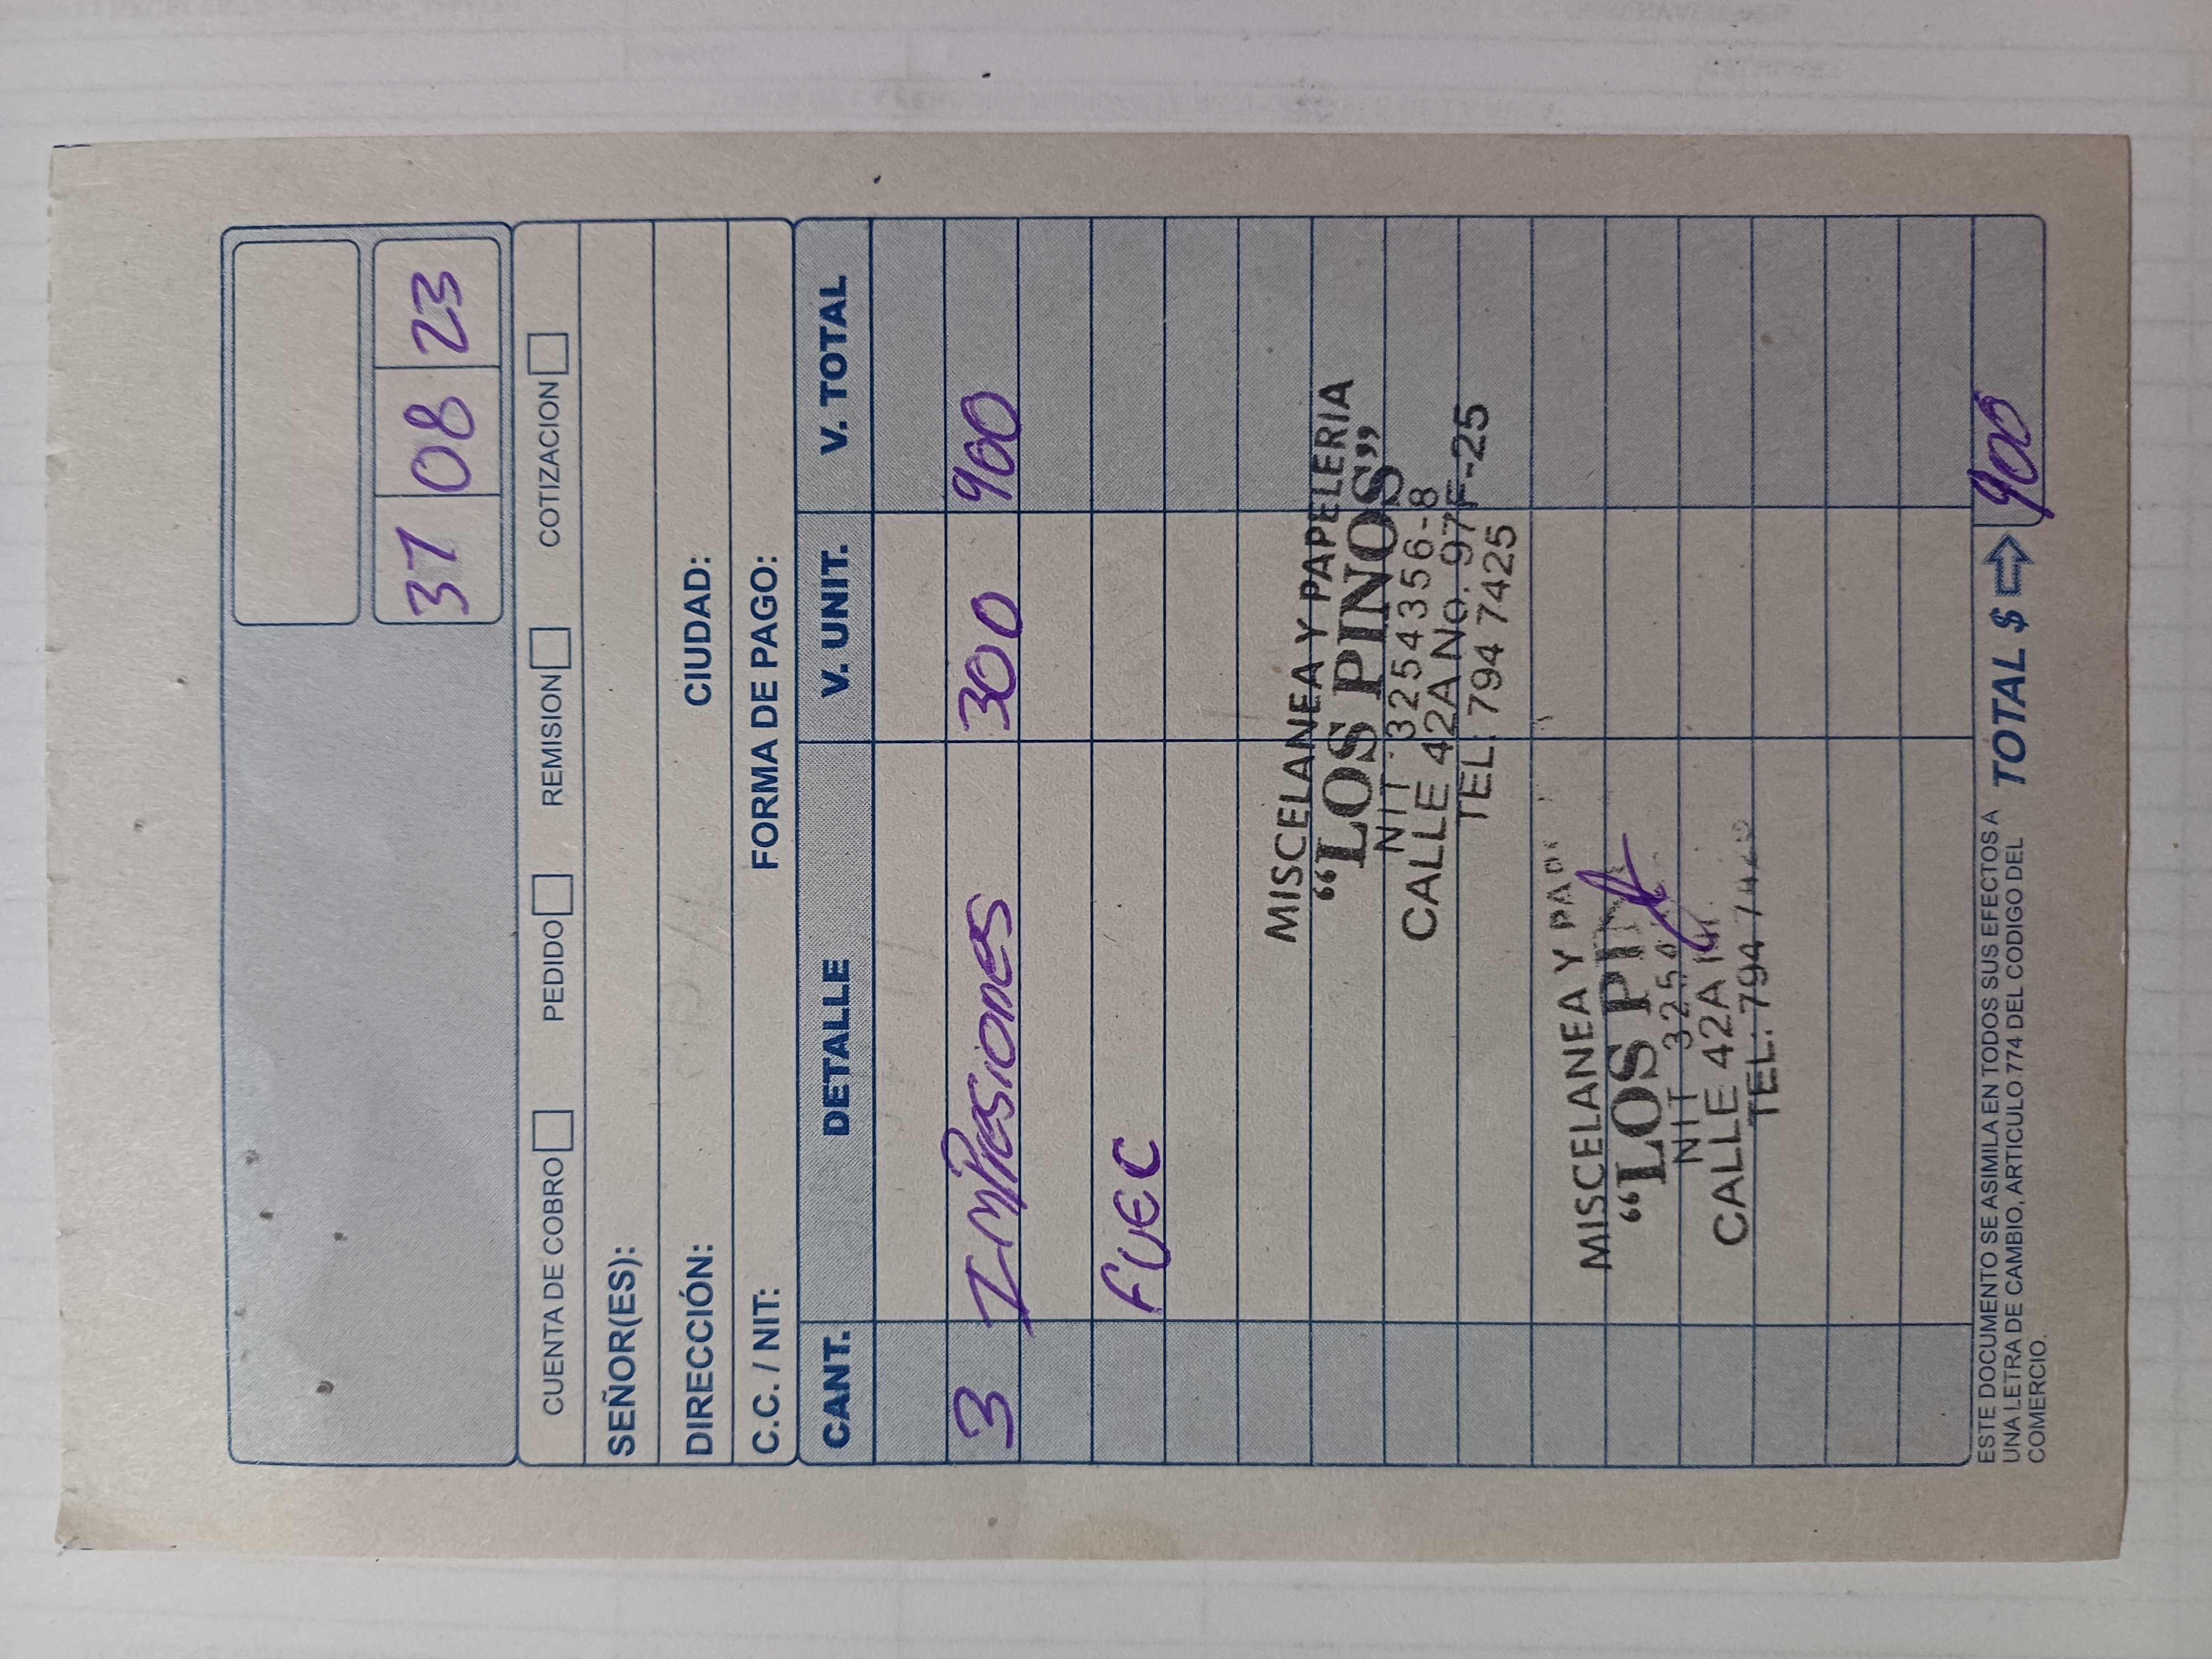 37 08 23
CUENTA DE COBRO PEDIDO REMISION COTIZACION
SEÑOR(ES):
DIRECCIÓN: CIUDAD:
C.C. / NIT: FORMA DE PAGO:
CANT. DETALLE V. UNIT. V. TOTAL
3 IMPresiones 300 900
FUEC
MISCELANEA Y PAPELERIA
“LOS PINOS”
NIT 3254356-8
CALLE 42A No. 97F-25
TEL: 794 7425
MISCELANEA Y
“LOS
NIT
CALLE 42A
TEL: 794
ESTE DOCUMENTO SE ASIMILA EN TODOS SUS EFECTOS A
UNA LETRA DE CAMBIO, ARTICULO 774 DEL CODIGO DEL
COMERCIO.
TOTAL $ 900